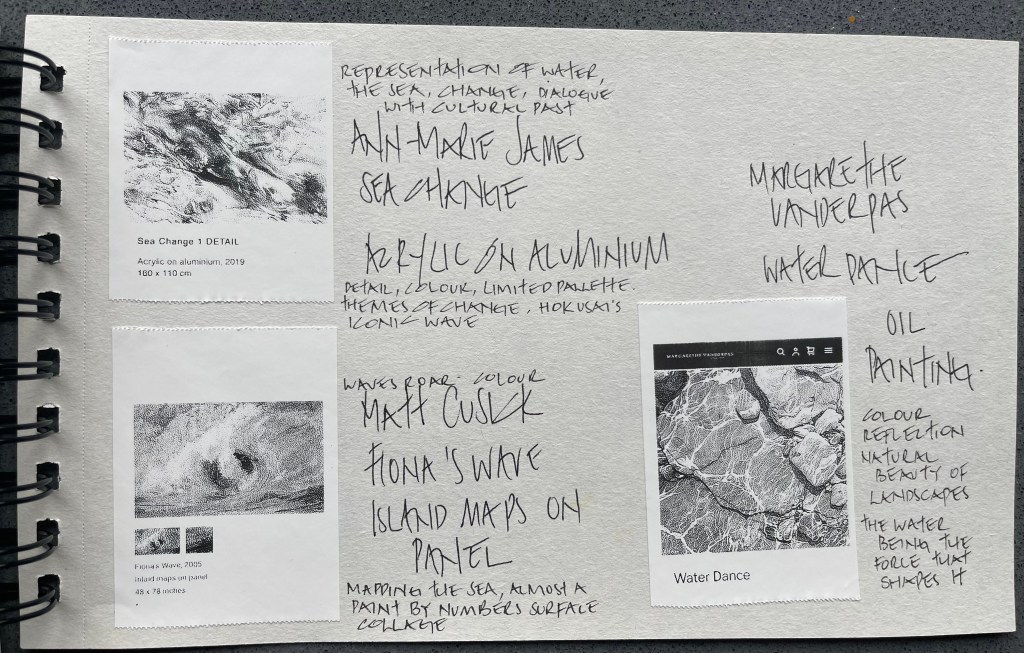 Sea Change 1 DETAIL
Acrylic on aluminium, 2019
160 x 110 cm
REPRESENTATION OF WATER,
THE SEA, CHANGE, DIALOGUE
WITH CULTURAL PAST
ANN-MARIE JAMES
SEA CHANGE
ACRYLIC ON ALUMINIUM
DETAIL, COLOUR, LIMITED PALLETTE.
THEMES OF CHANGE, HOKUSAI'S
ICONIC WAVE
Fiona's Wave, 2005
Inland maps on panel
48 x 78 inches
WAVES ROAR - COLOUR
MATT CUSICK
FIONA'S WAVE
ISLAND MAPS ON
PANEL
MAPPING THE SEA, ALMOST A
PAINT BY NUMBERS SURFACE
COLLAGE
MARGARETHE
VANDERPAS
WATER DANCE
MARGARETHE VANDERPAS
Water Dance
OIL
PAINTING.
COLOUR
REFLECTION
NATURAL
BEAUTY OF
LANDSCAPES
THE WATER
BEING THE
FORCE THAT
SHAPES IT